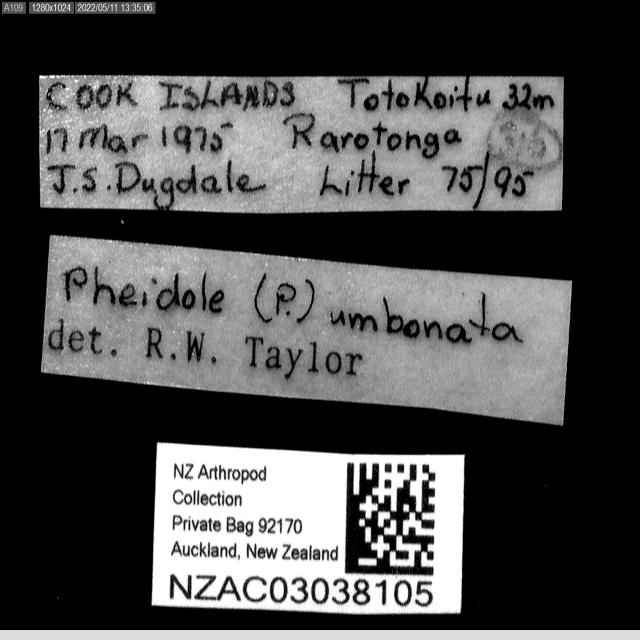 A109 1280x1024 2022/05/11 13:35:06
COOK ISLANDS Totokoitu 32m
17 Mar 1975 Rarotonga
J.S. Dugdale Litter 75/95
Pheidole (P.) umbonata
det. R.W. Taylor
NZ Arthropod
Collection
Private Bag 92170
Auckland, New Zealand
NZAC03038105